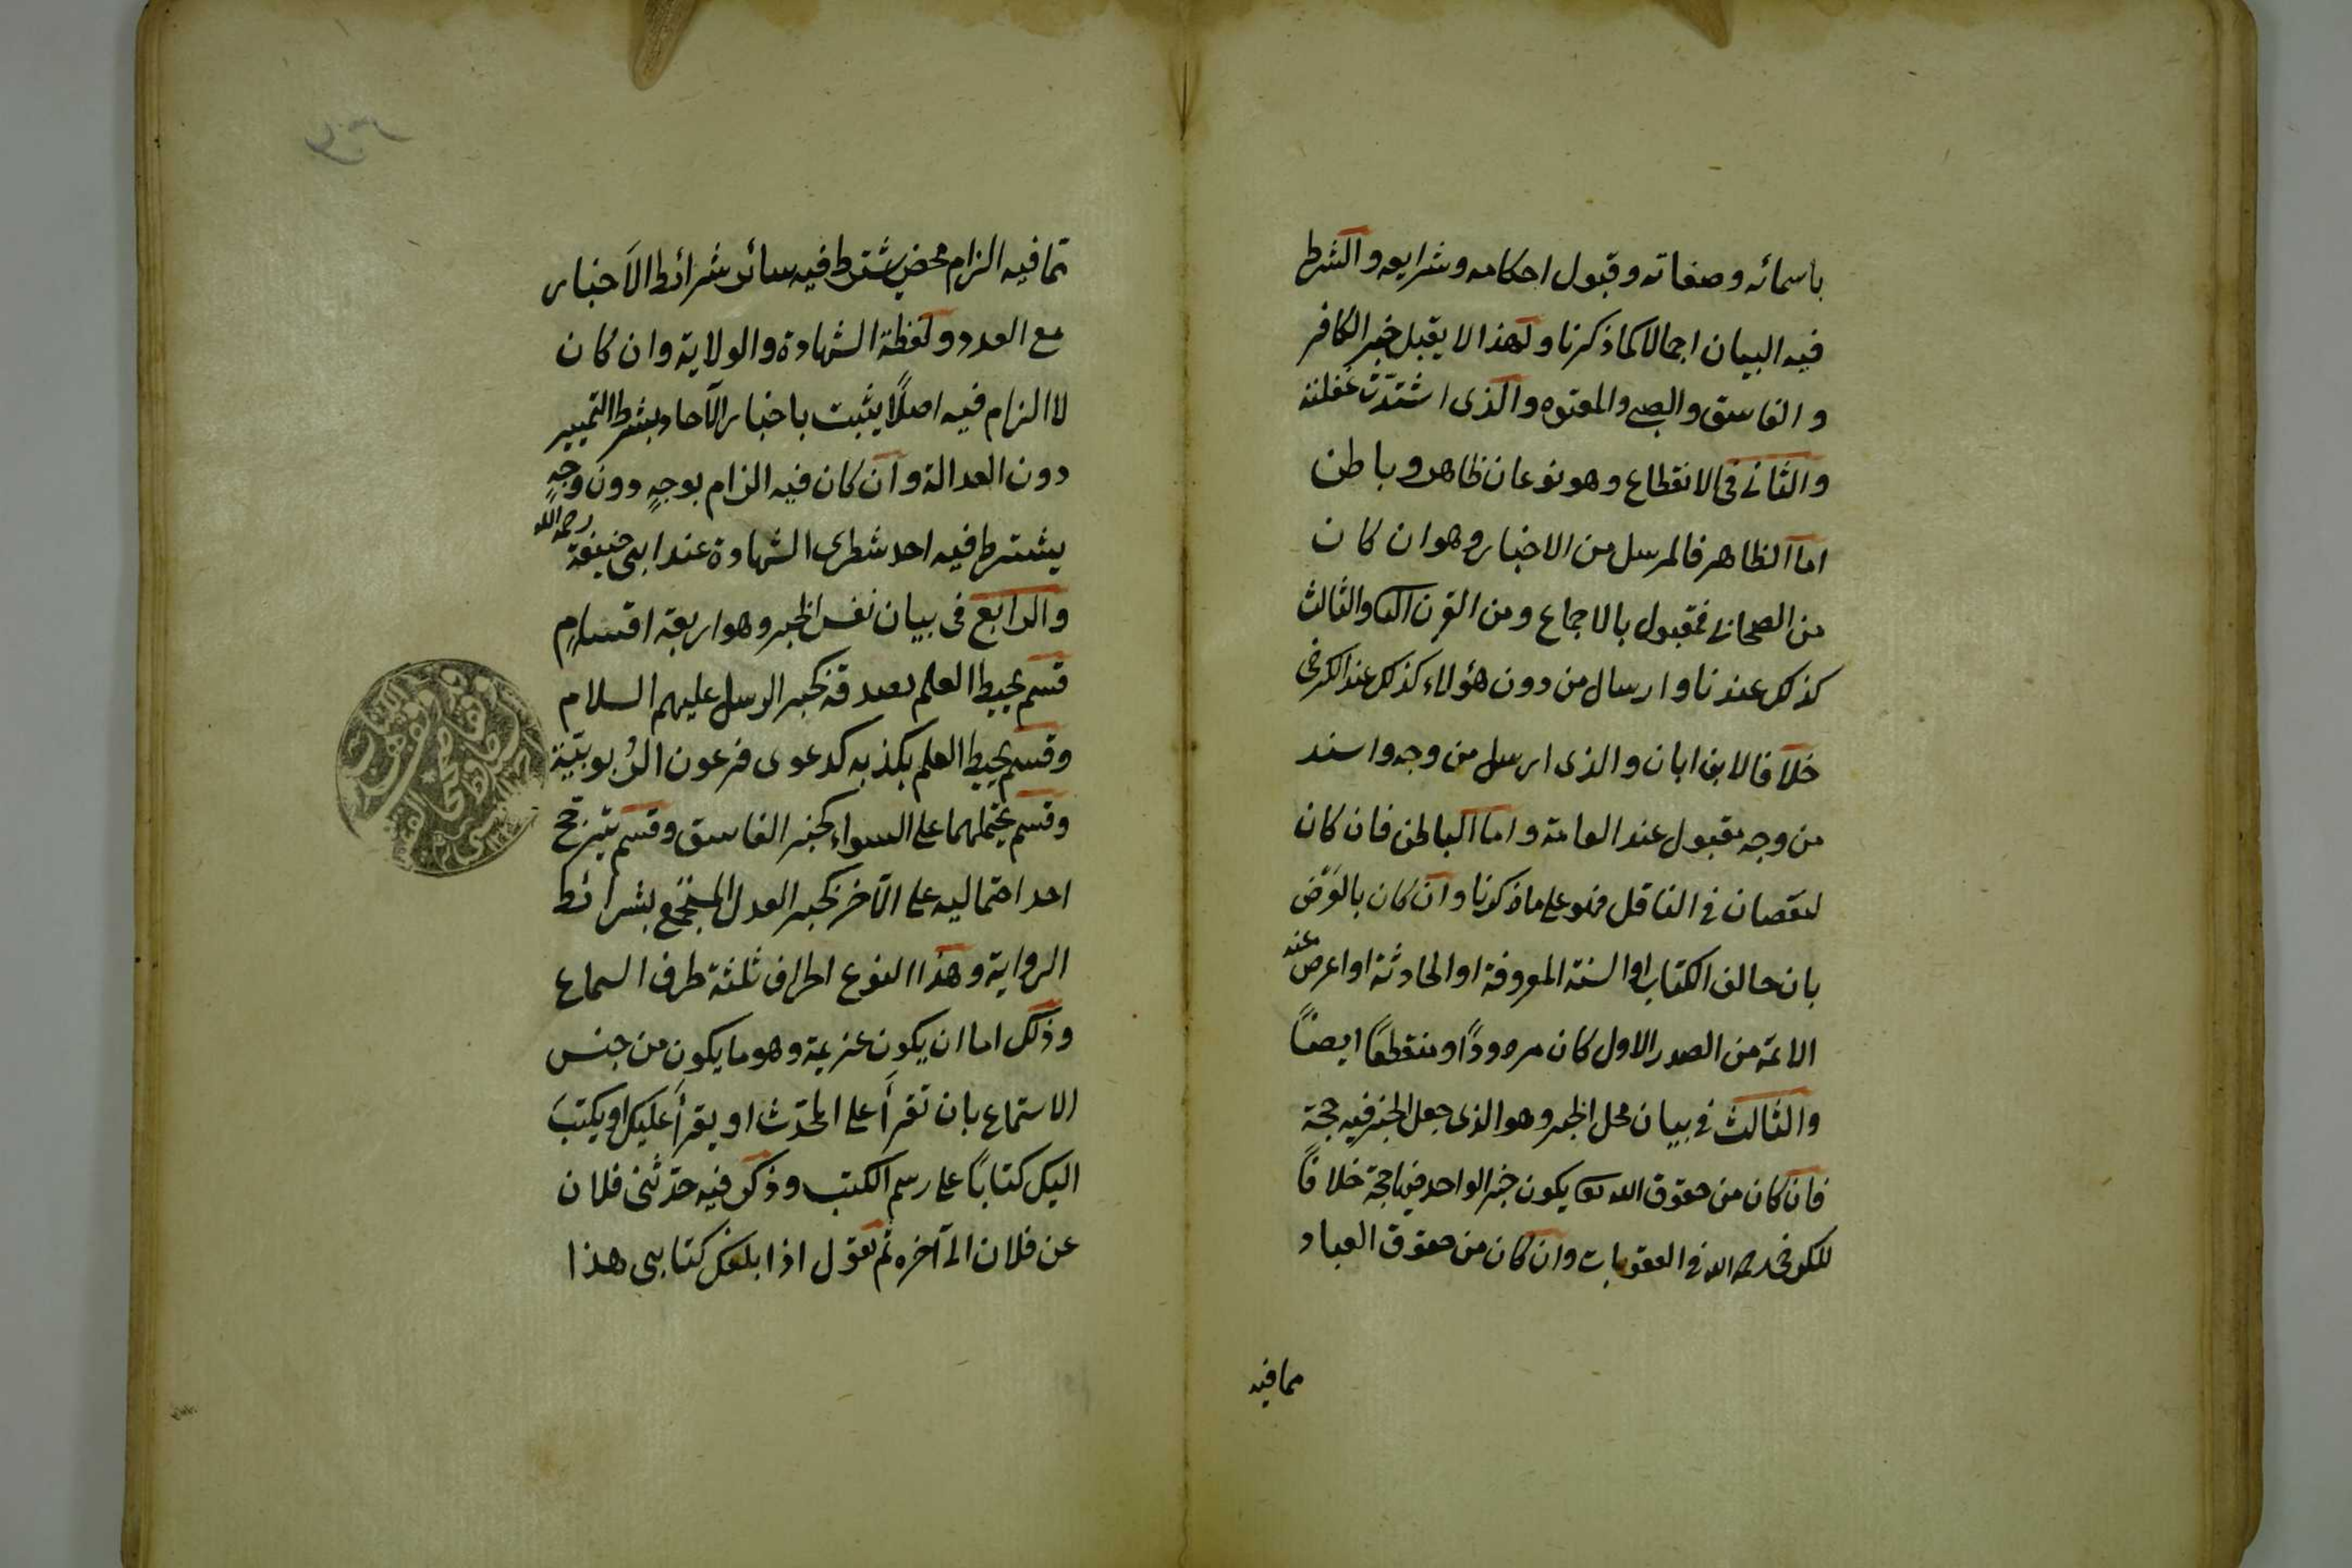 باسمائه وصفاته وقبول احكامه وشرايعه والشرط
فيه البيان اجمالا كما ذكرنا ولهذا لا يقبل خبر الكافر
والفاسق والصبى والمعتوه والذى اشتدّت غفلته
والثانى فى الانقطاع وهو نوعان ظاهر وباطن
اما الظاهر فالمرسل من الاخبار وهو ان كان
من الصحابى فمقبول بالاجماع ومن القرن الثا والثالث
كذلك عندنا وارسال من دون هؤلاء كذلك عند الكرخى
خلافا لابن ابان والذى ارسل من وجه واسند
من وجه مقبول عند العامة واما الباطن فان كان
لنقصان فى الناقل فهو على ما ذكرنا وان كان بالعَرْض
بان خالف الكتاب او السنة المعروفة او الحادثة او اعرض عنه
الائمة من الصدر الاول كان مردودًا ومنقطعًا ايضًا
والثالث فى بيان محل الخبر وهو الذى جعل الخبر فيه حجة
فان كان من حقوق الله تعا يكون خبر الواحد فيها حجة خلافًا
للكرخى رحمه الله فى العقوبات وان كان من حقوق العباد
مما فيه
مما فيه الزام محض يشترط فيه سائر شرائط الاخبار
مع العدد ولفظة الشهادة والولاية وان كان
لا الزام فيه اصلًا يثبت باخبار الآحاد بشرط التمييز
دون العدالة وان كان فيه الزام بوجهٍ دون وجهٍ
يشترط فيه احد شطرى الشهادة عند ابى حنيفة رحمه الله
والرابع فى بيان نفس الخبر وهو اربعة اقسام
قسم يحيط العلم بصدقه كخبر الرسل عليهم السلام
وقسم يحيط العلم بكذبه كدعوى فرعون الرُبوبيّة
وقسم يحتملهما على السواء كخبر الفاسق وقسم يترجّح
احد احتماليه على الآخر كخبر العدل المستجمع بشرائط
الرواية وهذا النوع اطراف ثلثة طرف السماع
وذلك اما ان يكون عزيمة وهو ما يكون من جنس
الاستماع بان تقرأ على المحدّث او يقرأ عليك او يكتب
اليك كتابًا على رسم الكتب وذكر فيه حدّثنى فلان
عن فلان الى آخره ثم تقول اذا بلغك كتابى هذا